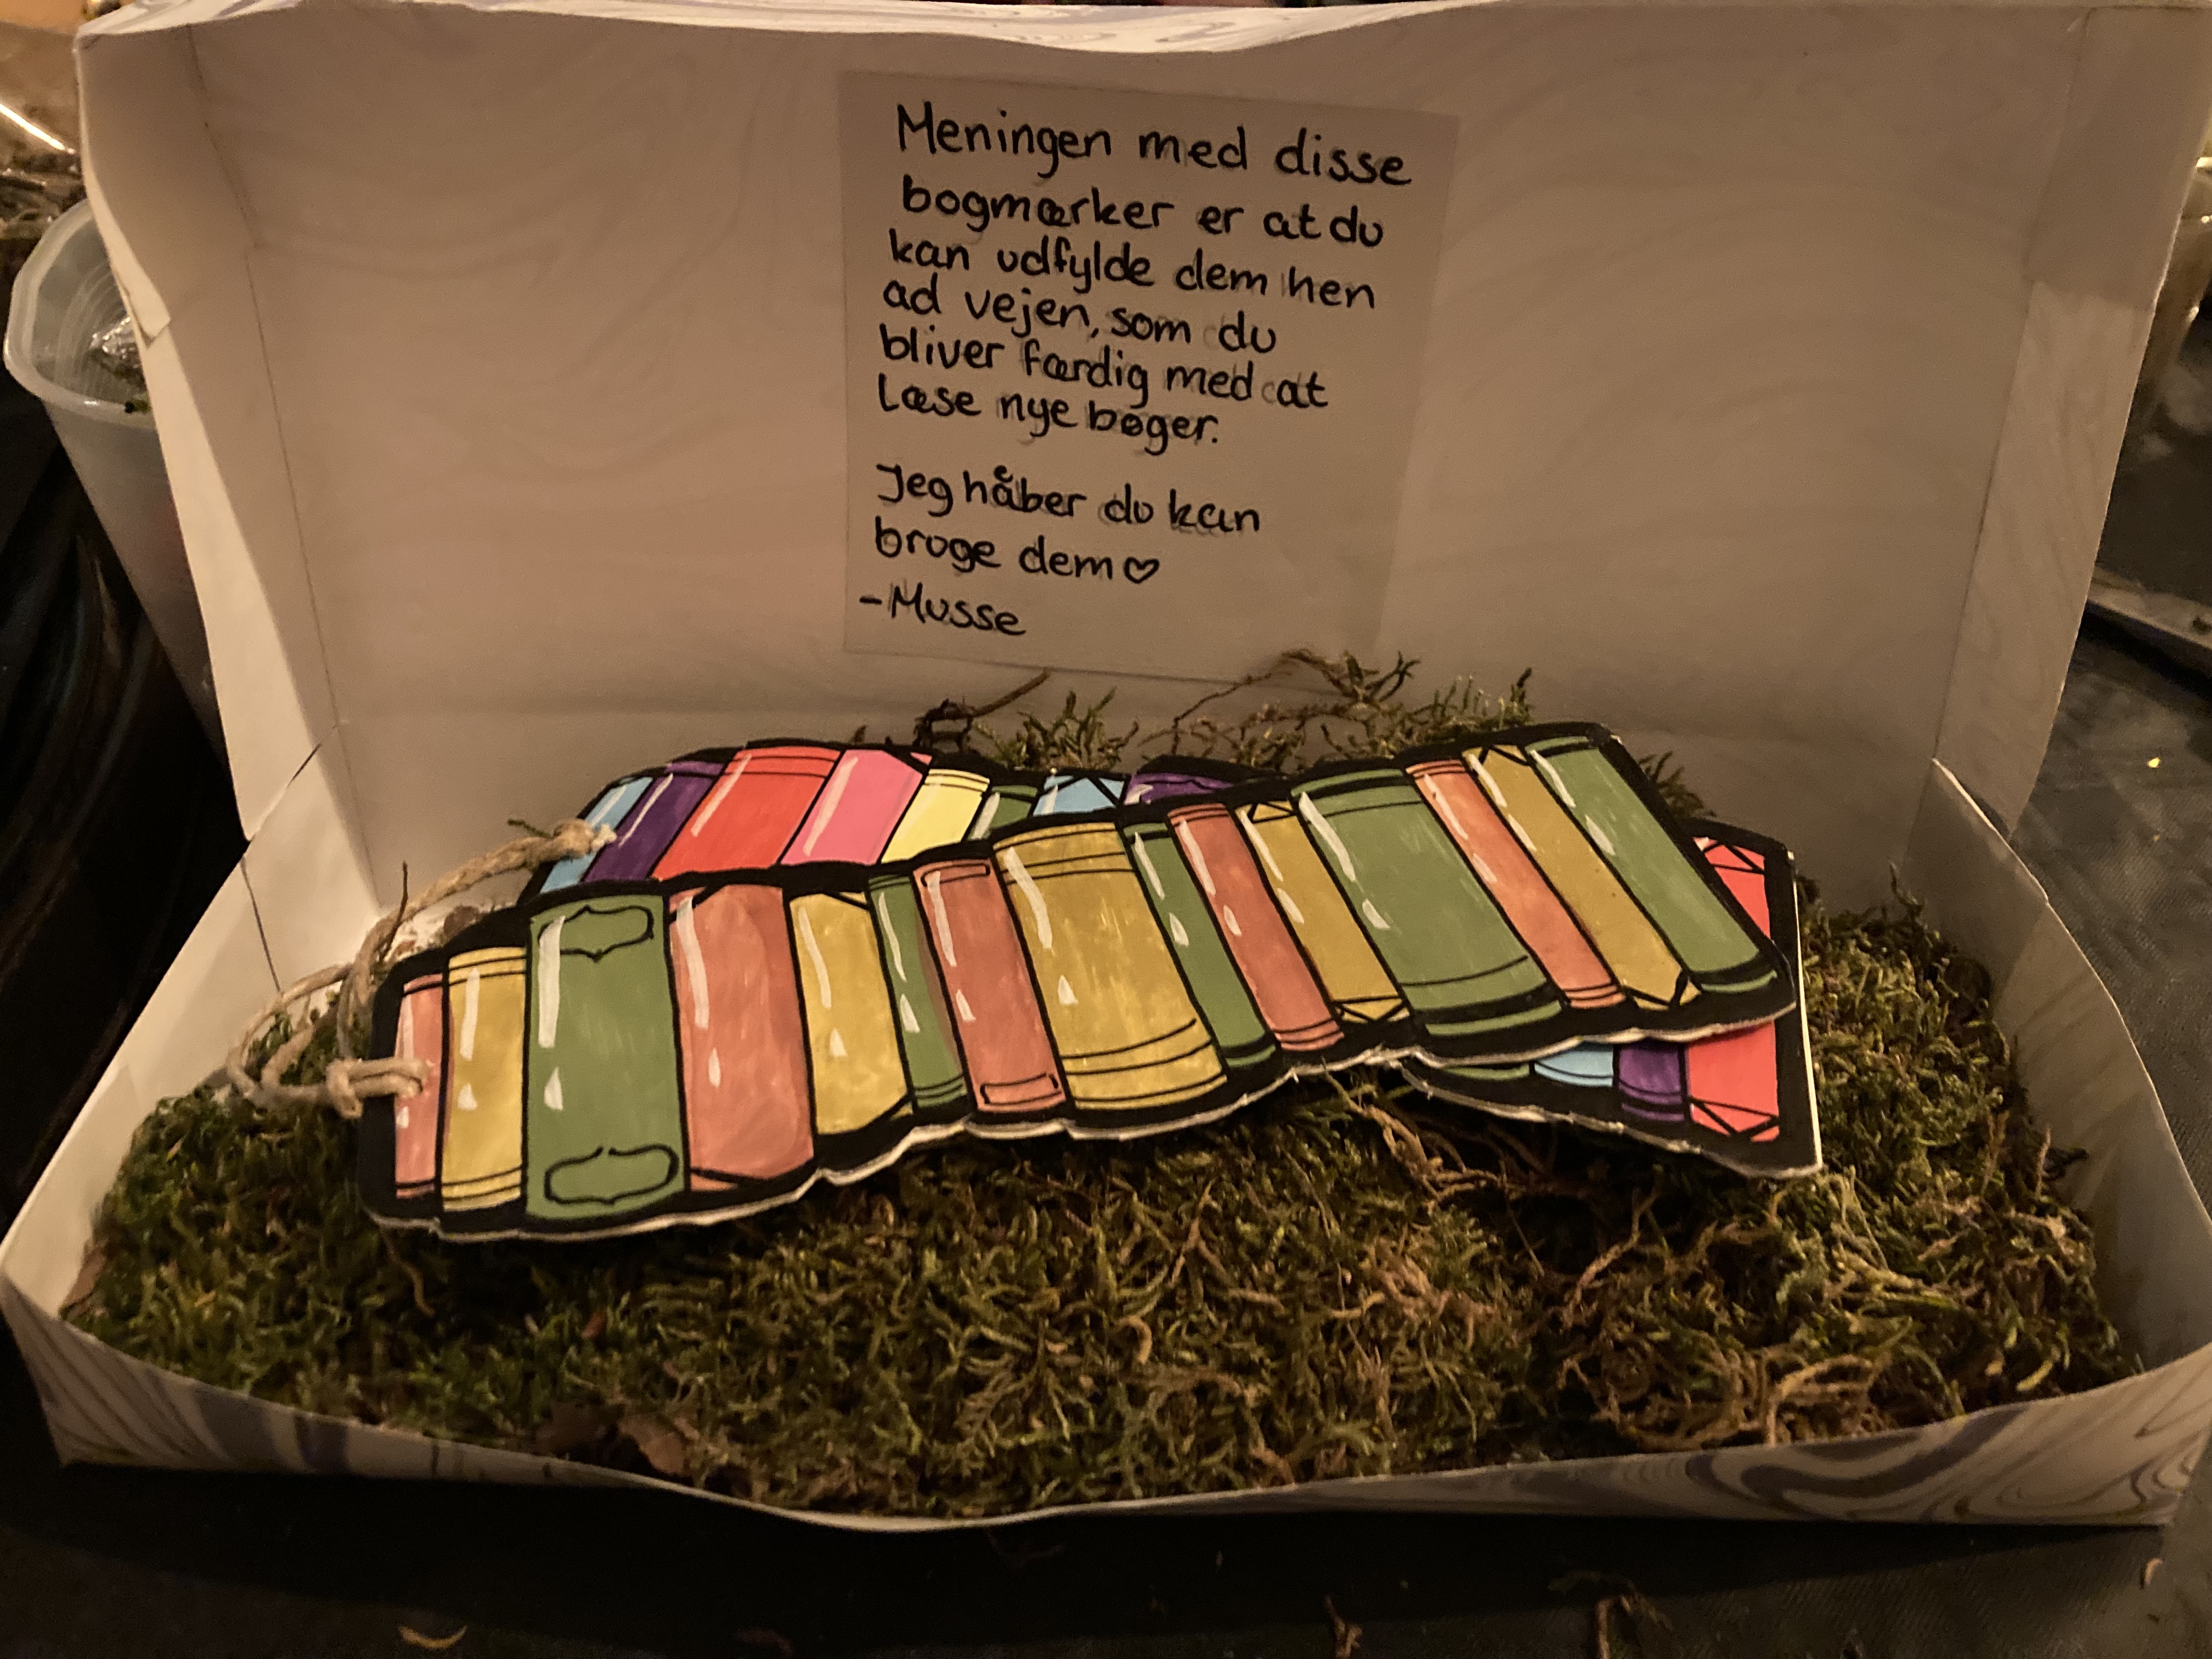 Meningen med disse
bogmærker er at du
kan udfylde dem hen
ad vejen, som du
bliver færdig med at
læse nye bøger.
Jeg håber du kan
bruge dem♡
-Musse